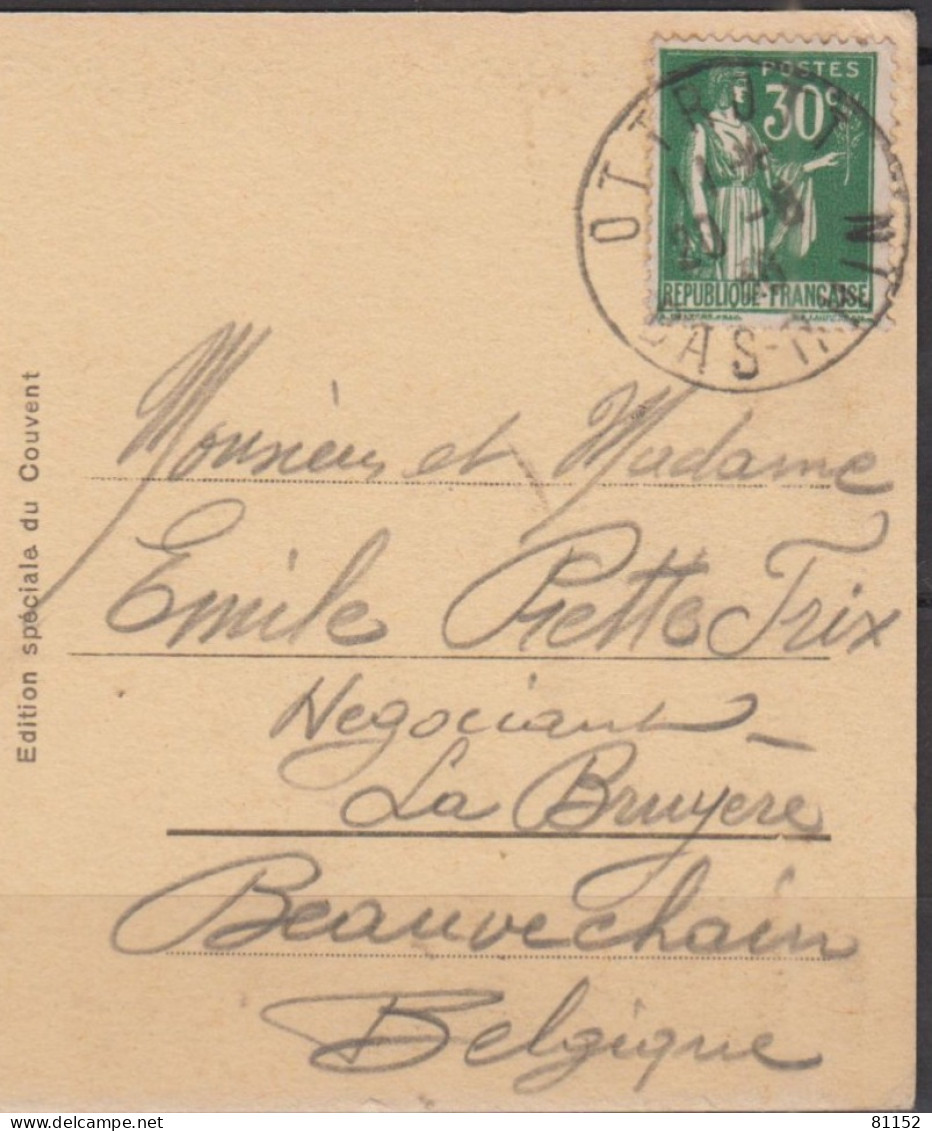 POSTES
30c
REPUBLIQUE-FRANÇAISE
OTTROTT
11
20
BAS-RHIN
Edition spéciale du Couvent
Monsieur et Madame
Emile Piette Trix
Negociant
La Bruyere
Beauvechain
Belgique
81152